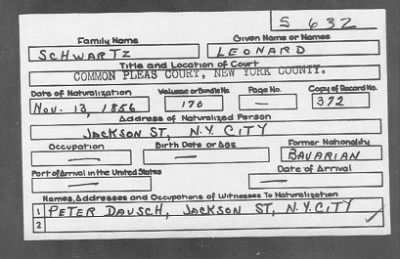 S 632
Family Name Given Name or Names
SCHWARTZ LEONARD
Title and Location of Court
COMMON PLEAS COURT, NEW YORK COUNTY.
Date of Naturalization Volume or Bundle No. Page No. Copy of Record No.
NOV. 13, 1856 170 — 372
Address of Naturalized Person
JACKSON ST, N.Y. CITY
Occupation Birth Date or Age Former Nationality
— — BAVARIAN
Port of Arrival in the United States Date of Arrival
— —
Names, Addresses and Occupations of Witnesses To Naturalization
1 PETER DAUSCH, JACKSON ST, N.Y. CITY
2